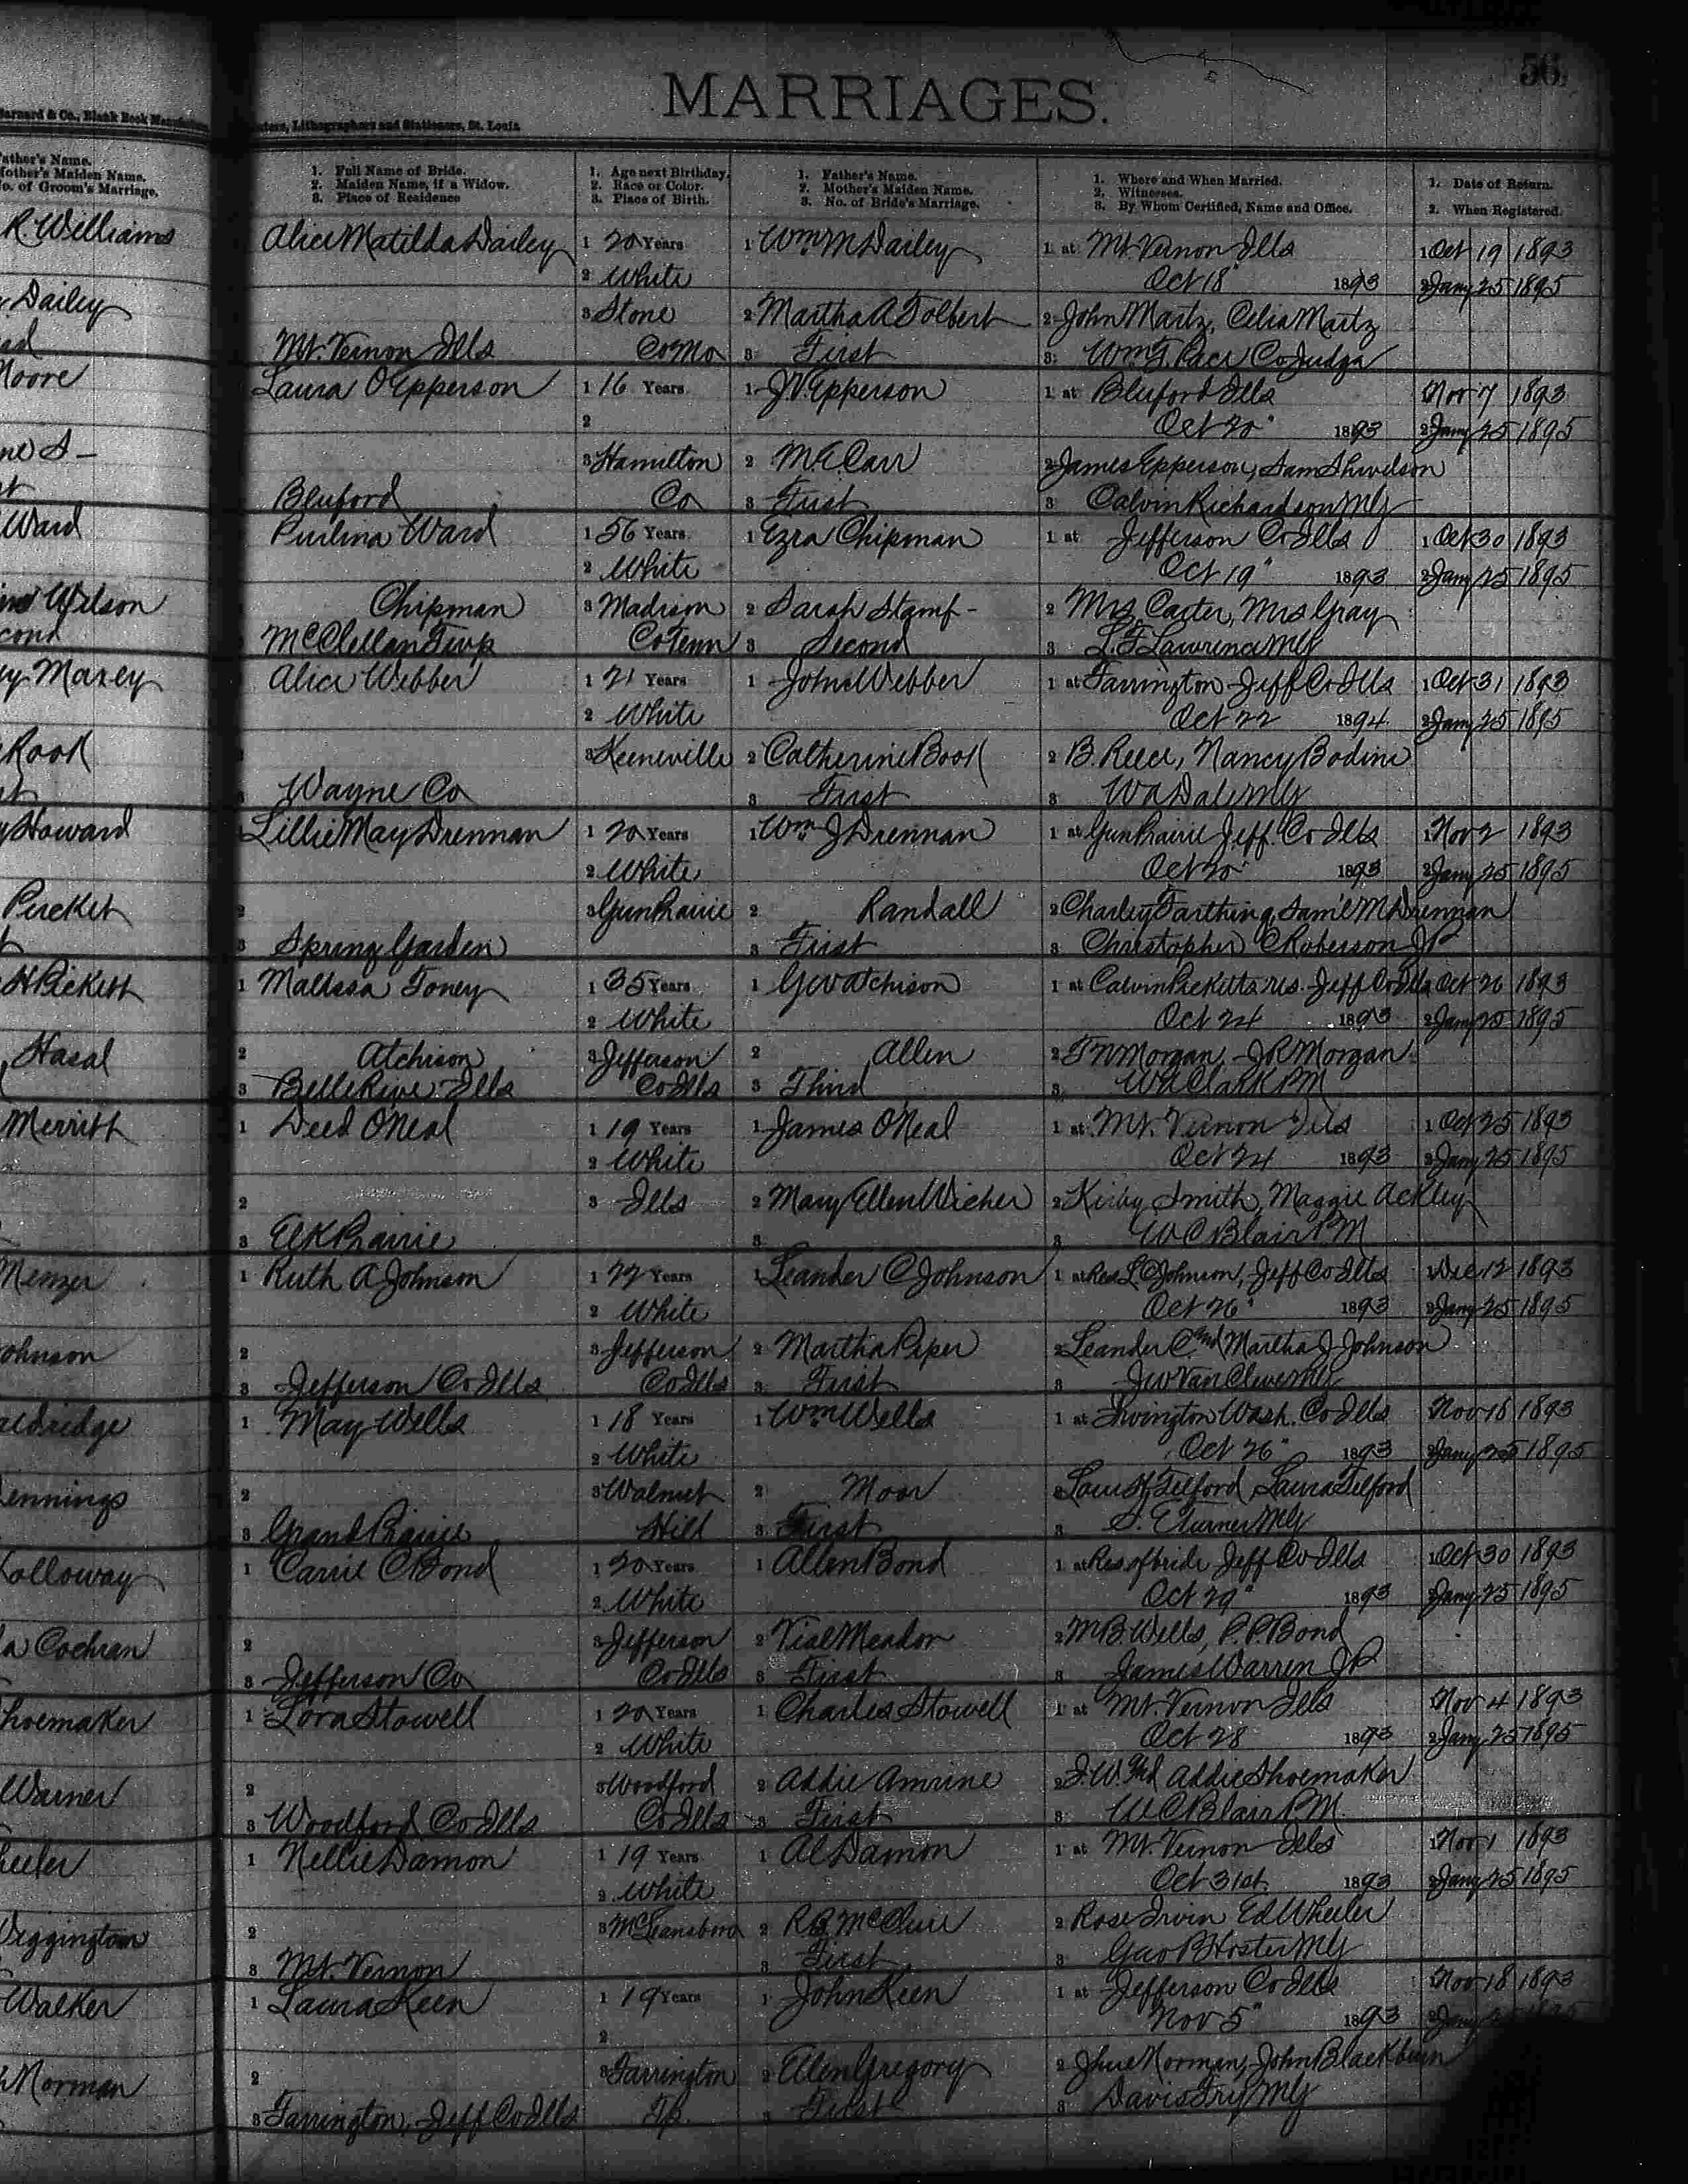 56
MARRIAGES.
Barnard & Co., Blank Book
Lithographers and Stationers, St. Louis
Father's Name.
Mother's Maiden Name.
No. of Groom's Marriage.
1. Full Name of Bride.
2. Maiden Name, if a Widow.
3. Place of Residence
1. Age next Birthday.
2. Race or Color.
3. Place of Birth.
1. Father's Name.
2. Mother's Maiden Name.
3. No. of Bride's Marriage.
1. Where and When Married.
2. Witnesses.
3. By Whom Certified, Name and Office.
1. Date of Return.
2. When Registered.
R Williams Alice Matilda Dailey 1 20 Years 1 Wm M Dailey 1 at Mt. Vernon Ills 1 Oct 19 1893
2 White Oct 18" 1893 2 Jany 25 1895
Dailey 3 Stone 2 Martha A Tolbert 2 John Martz, Celia Martz
Mt. Vernon Ills Co Mo 3 First 3 Wm T. Pace Co Judge
Moore Laura O Epperson 1 16 Years 1 J.V. Epperson 1 at Bluford Ills Nov 7 1893
2 Oct 20" 1893 2 Jany 25 1895
3 Hamilton 2 M E Carr 2 James Epperson, Sam
Bluford Co 3 First 3 Calvin Richardson MG
Ward Purlina Ward 1 56 Years 1 Ezra Chipman 1 at Jefferson Co Ills 1 Oct 30 1893
2 White Oct 19" 1893 2 Jany 25 1895
Wilson Chipman 3 Madison 2 Sarah Stamf- 2 Mrs Carter, Mrs Gray
McClellan Twp Co Tenn 3 Second 3 L.F. Lawrence MG
Maxey Alice Webber 1 21 Years 1 John Webber 1 at Farrington Jeff Co Ills 1 Oct 31 1893
2 White Oct 22 1894 2 Jany 25 1895
Rook 3 Keeneville 2 Catherine Book 2 B. Reece, Nancy Bodine
Wayne Co 3 First 3 WA Dale MG
Howard Lillie May Drennan 1 20 Years 1 Wm J Drennan 1 at Gun Prairie Jeff. Co Ills 1 Nov 2 1893
2 White Oct 20" 1893 2 Jany 25 1895
Pucket 2 3 Gun Prairie 2 Randall 2 Charley Farthing, Saml M Drennan
3 Spring Garden 3 First 3 Christopher C Roberson JP
H Pickett 1 Malissa Toney 1 35 Years 1 GW Atchison 1 at Calvin Picketts res. Jeff Co Ills Oct 26 1893
2 White Oct 24 1893 2 Jany 25 1895
Hasal 2 Atchison 3 Jefferson 2 Allen 2 T N Morgan, J R Morgan
3 Belle Rive Ills Co Ills 3 Third 3 WH Clark PM
Merritt 1 Deed ONeal 1 19 Years 1 James ONeal 1 at Mt. Vernon Ills 1 Oct 25 1893
2 White Oct 24 1893 2 Jany 25 1895
2 3 Ills 2 Mary Ellen Wicher 2 Kirby Smith, Maggie Ackley
3 Elk Prairie 3 3 W C Blair PM
Menzer 1 Ruth A Johnson 1 22 Years 1 Leander C Johnson 1 at Res L C Johnson, Jeff Co Ills 1 Dec 12 1893
2 White Oct 26" 1893 2 Jany 25 1895
Johnson 2 3 Jefferson 2 Martha Piper 2 Leander C and Martha J Johnson
3 Jefferson Co Ills Co Ills 3 First 3 JW Van Cleve MG
Aldridge 1 May Wells 1 18 Years 1 Wm Wells 1 at Irvington Wash. Co Ills Nov 18 1893
2 White Oct 26" 1893 2 Jany 25 1895
Jennings 2 3 Walnut 2 Moor 2 Telford, Laura Telford
3 Grand Prairie Hill 3 First 3 S. E Turner MG
Holloway 1 Carrie C Bond 1 20 Years 1 Allen Bond 1 at Res of bride Jeff Co Ills 1 Oct 30 1893
2 White Oct 29" 1893 2 Jany 25 1895
Cochran 2 3 Jefferson 2 Vial Meador 2 M B. Wells, P. P. Bond
3 Jefferson Co Co Ills 3 First 3 James Warren JP
Shoemaker 1 Lora Stowell 1 20 Years 1 Charles Stowell 1 at Mt. Vernon Ills Nov 4 1893
2 White Oct 28 1893 2 Jany 25 1895
Warner 2 3 Woodford 2 Addie Amrine 2 J.W. and Addie Shoemaker
3 Woodford Co Ills Co Ills 3 First 3 W C Blair PM
Wheeler 1 Nellie Damon 1 19 Years 1 Al Damon 1 at Mt. Vernon Ills 1 Nov 1 1893
2 White Oct 31st. 1893 2 Jany 25 1895
Wiggington 2 3 McLeansboro 2 R B McCluer 2 Rose Irvin Ed Wheeler
3 Mt. Vernon 3 First 3 Geo B Hoster MG
Walker 1 Laura Keen 1 19 Years 1 John Keen 1 at Jefferson Co Ills Nov 18 1893
2 Nov 5" 1893 2 Jany 25 1895
Norman 2 3 Farrington 2 Ellen Gregory 2 Norman, John Blackburn
3 Farrington, Jeff Co Ills Tp. 3 First 3 Davis Fry MG